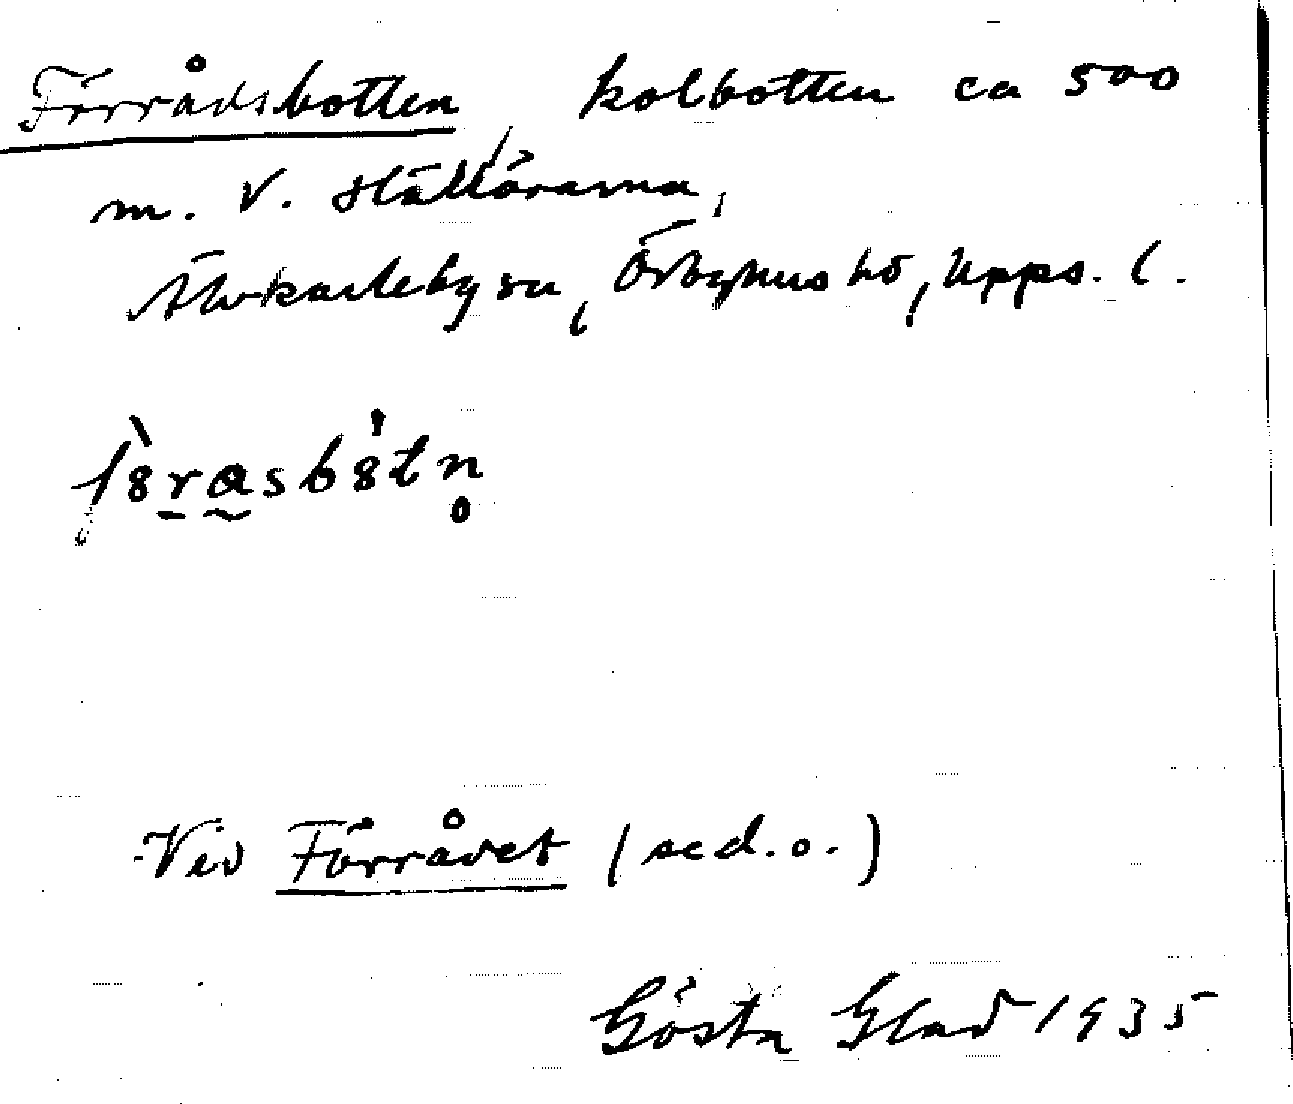 Förrådsbotten, kolbotten ca 500
m. V. Hällörarna,
Älvkarleby sn, Örbyhus hd, Upps. l.
Vid Förrådet (se d. o.)
Gösta Glad 1935